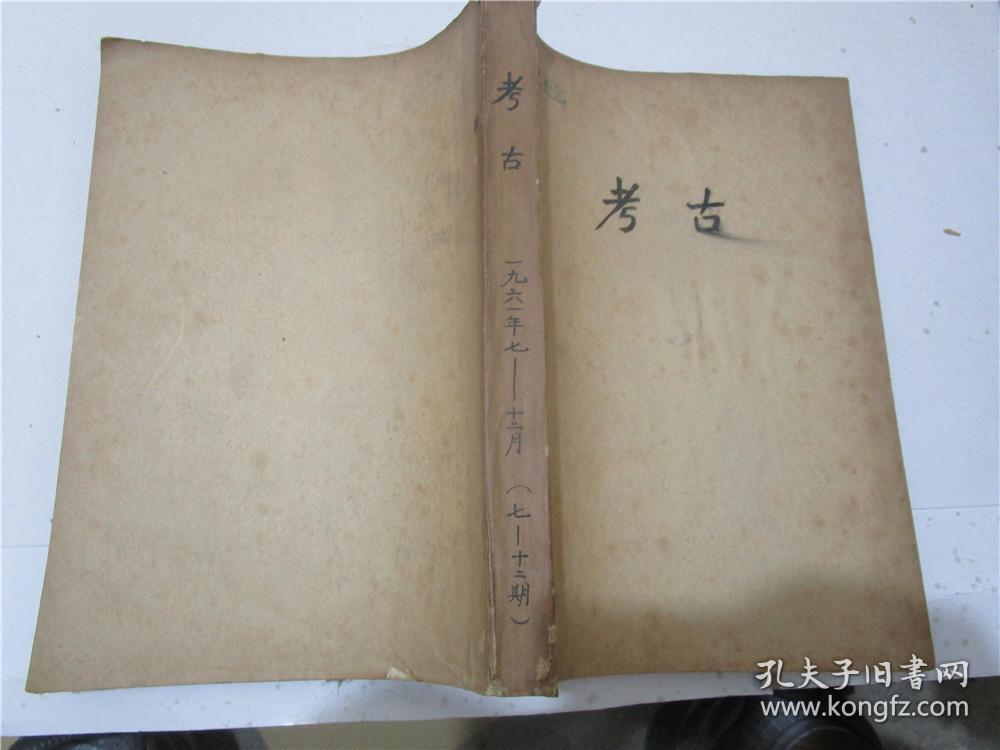 考古
一九六一年七——十二月
（七—十二期）
考古
孔夫子旧書网
www.kongfz.com